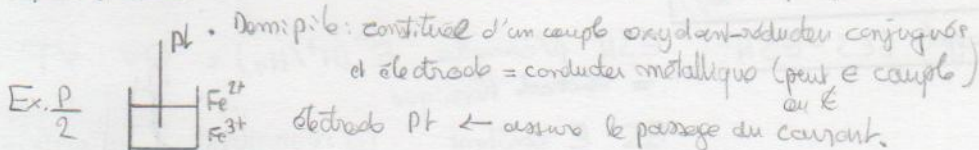 Pt • Demipile: constituée d'un couple oxydant-réducteur conjugués
et électrode = conducteur métallique (peut ∈ couple)
ou ∉
Ex. P/2 Fe²⁺
Fe³⁺ électrode Pt ← assure le passage du courant.